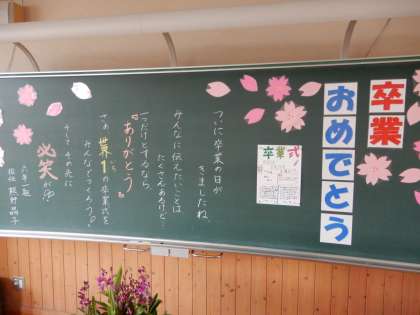 卒業
おめでとう
卒業式
ついに卒業の日が
きましたね。
みんなに伝えたいことは
たくさんあるけど…
一つだけとするなら、
ありがとう
さあ、世界1の卒業式を
みんなでつくろう。
そして、その先に
必笑が
六年一組
担任